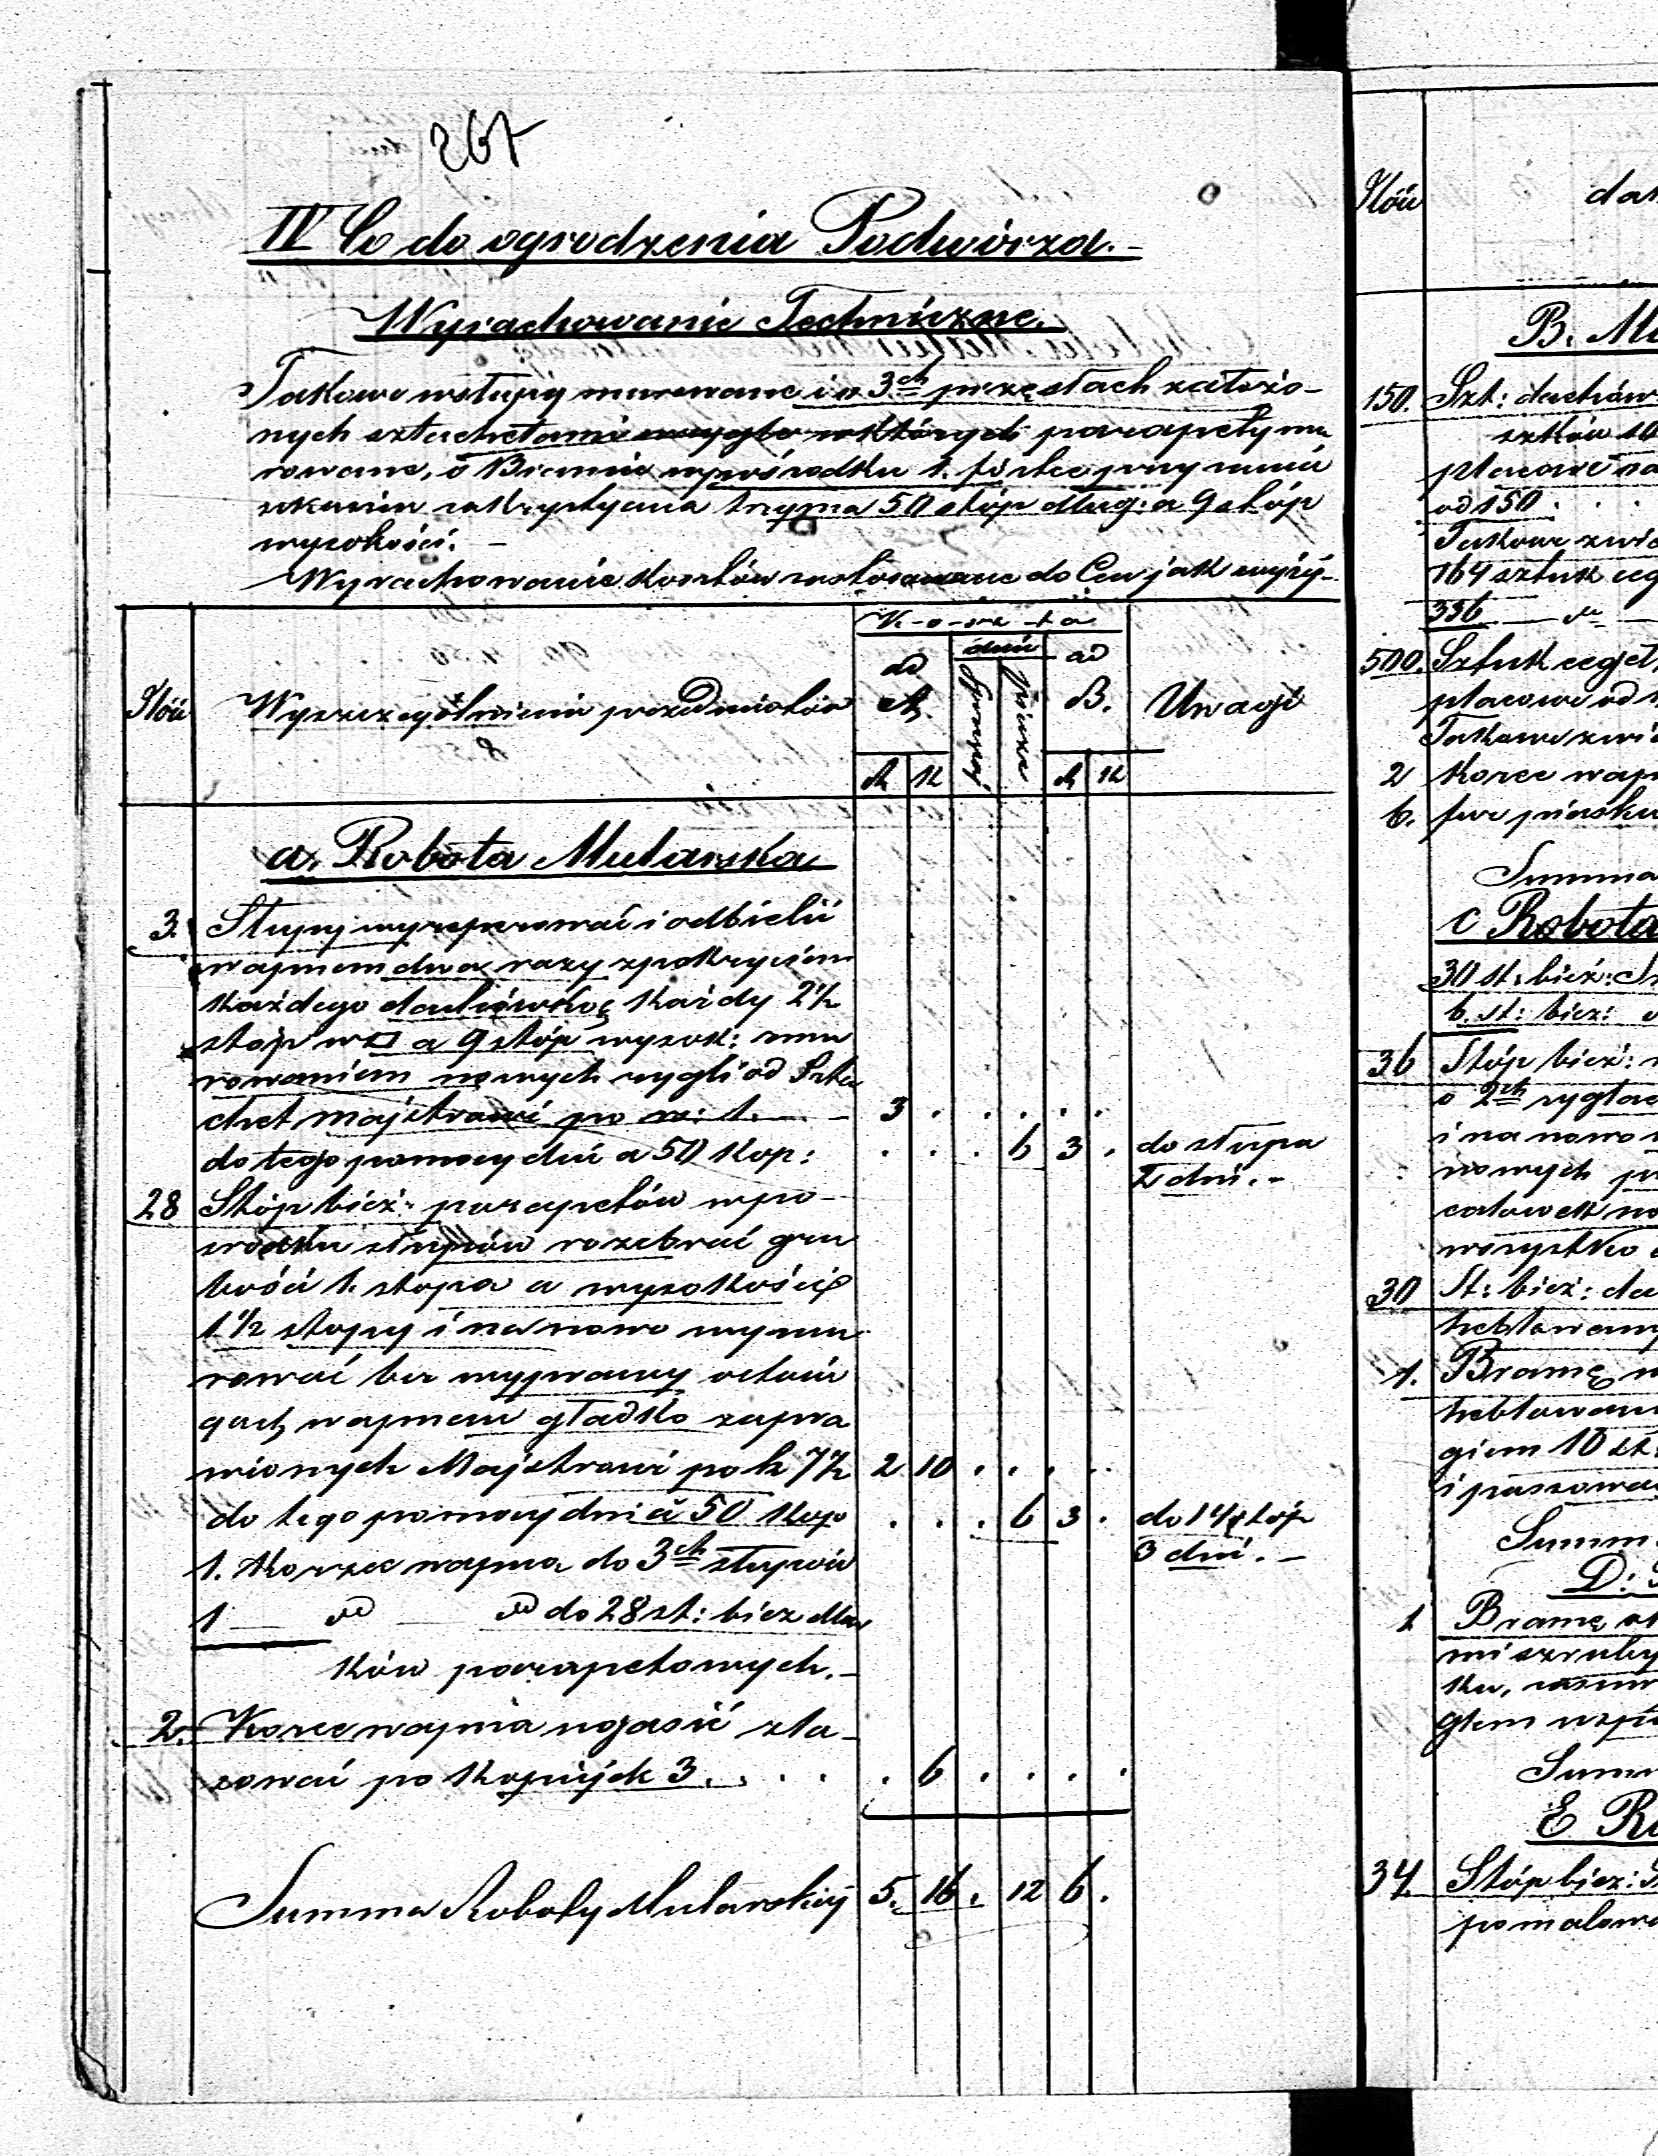 267
IV Co do ogrodzenia Podwórza.-
Wyrachowanie Techniczne.
Takowe w słupy murowane i o 3ch przęsłach założo-
nych sztachetami w których parapety mu
rowane, o Bramie wpośrodku 1. fórtce przy murze
trzyma 50 stóp dług: a 9 stóp
wysokości. -
Wyrachowanie kosztów zastosowane do Cen jak wyży-
Ilóść
Wyszczególnienie przedmiotów
K-o-sz-ta
ad
A.
dnie
ad
B.
Uwagi
R
K
R
K
a. Robota Mularska
3. Słupy wyreperować i odbielić
wapnem dwa razy z pokryciem
każdego dachówką każdy 2½
stóp w □ a 9 stóp wysok: zmu
rowaniem nowych rygli od Szta
chet majstrowi po rs: 1. - 3 . . . . .
do tego pomocy dni a 50 kop: . . . 6 3 . do słupa
2 dni. -
28 Stóp bież: parapetów wpo-
srodku słupów rozebrać gru
bości 1. stopa a wysokości
1½ stopy i na nowo wymu
rować bez wyprawy
gach wapnem gładko zapra
wionych Majstrowi po k 7½ 2 10 . . . .
do tego pomocy dni a 50 kop . . . 6 3 . do 14 stóp
3 dni. -
1. Korzec wapna do 3ch słupów
1 — do 28 st: bież Mur
ków parapetowych. -
2. Korce wapna ugasić zla-
sować po kopiejek 3 . . . . . 6 . . . .
Summa Roboty Mularskiej 5. 16 . 12 6 .
Ilóść
B. Mu
150. Szt: dachów
placowe na
od 150 . . .
Takowe zwie
164 sztuk ceg
336 — —
500. Sztuk cegeł
placowe od
Takowe zwie
2 Korce wap
6. fur piasku
Summa
C Robota
30 st: bież:
6. st: bież:
36 Stóp bież:
o 2ch rygla
i na nowo
nowych
calowek
wszystko
30 St: bież:
heblowany
1. Bramę
heblowan
giem 10 st:
i
Summ
D:
1 Bramę
mi szruby
Summ
E Ro
34. Stóp bież:
pomalowa